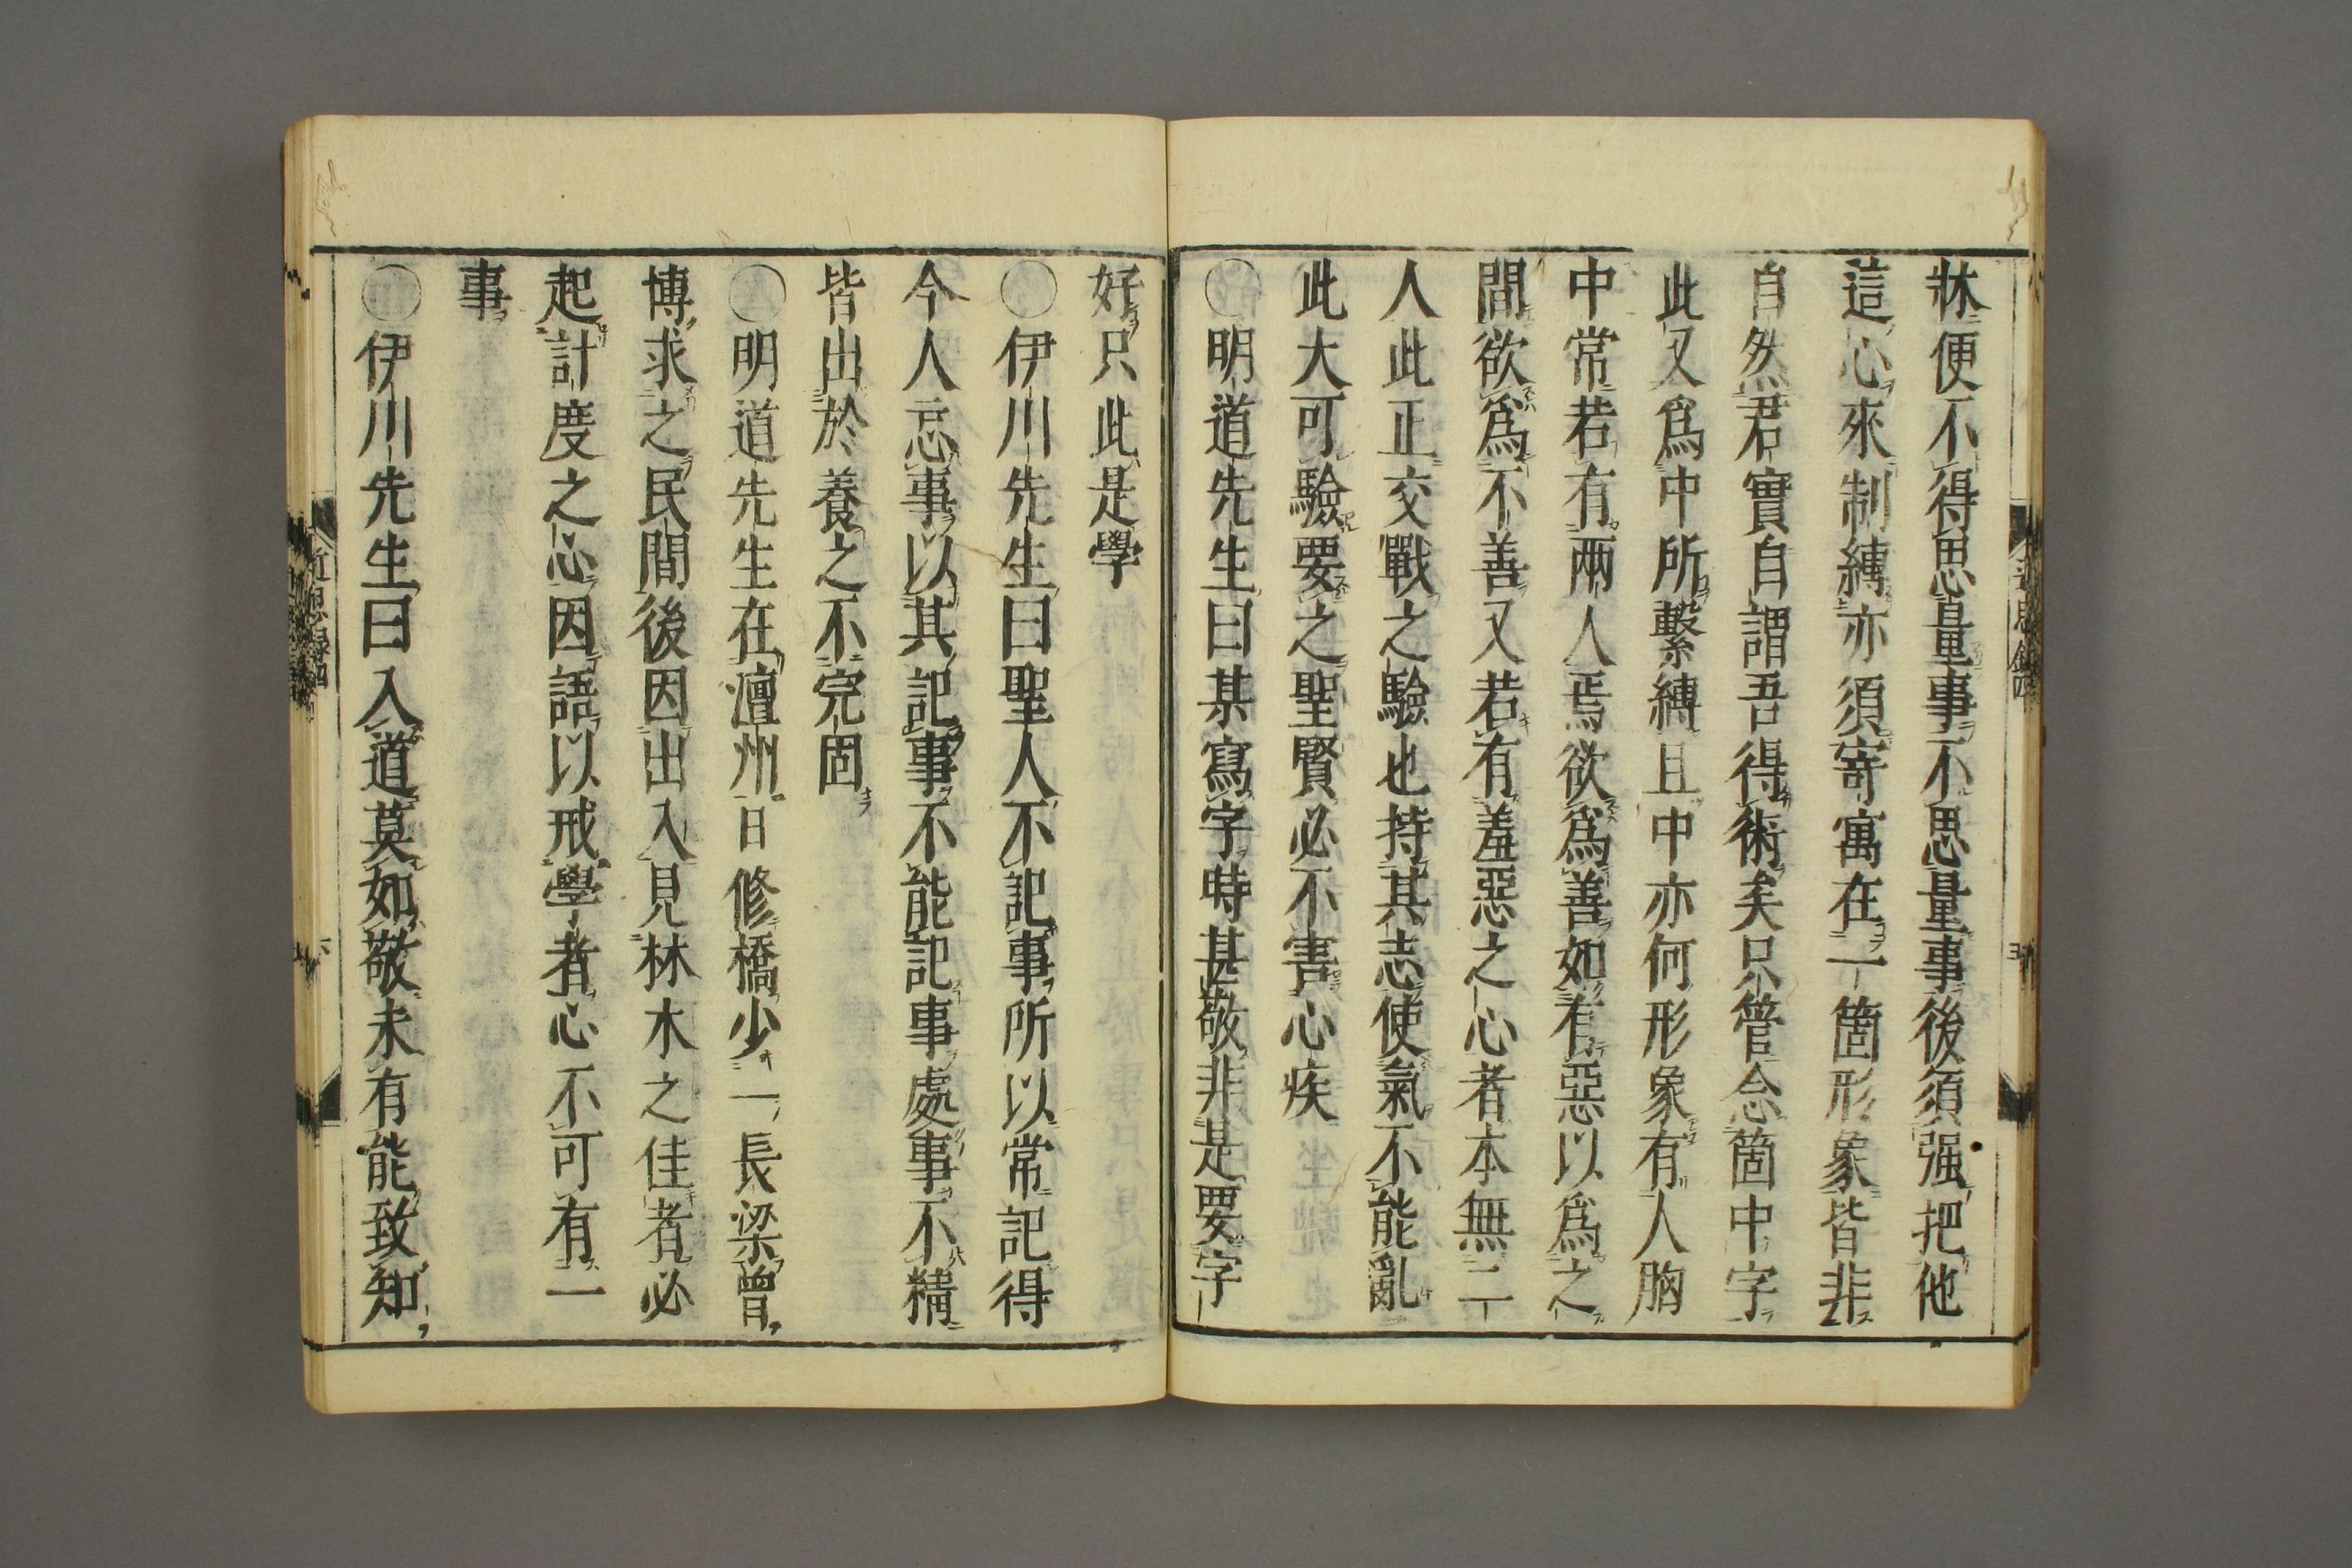 牀便不得思量事不思量事後須强把他
這心來制縛亦須寄寓在一箇形象皆非
自然君實自謂吾得術矣只管念箇中字
此又爲中所繫縛且中亦何形象有人胸
中常若有兩人焉欲爲善如有惡以爲之
間欲爲不善又若有羞惡之心者本無二
人此正交戰之驗也持其志使氣不能亂
此大可驗要之聖賢必不害心疾
〇明道先生曰某寫字時甚敬非是要字
好只此是學
〇伊川先生曰聖人不記事所以常記得
今人忘事以其記事不能記事處事不精
皆出於養之不完固
〇明道先生在澶州日修橋少一長梁曾
博求之民間後因出入見林木之佳者必
起計度之心因語以戒學者心不可有一
事
〇伊川先生曰入道莫如敬未有能致知
近思錄四
六